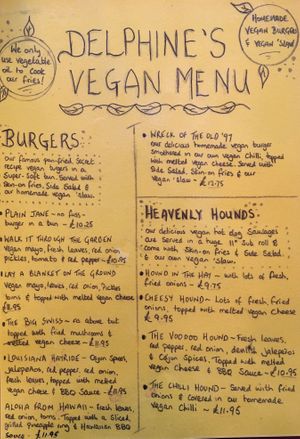 We only
use vegetable
oil to cook
our fries!
HOMEMADE
VEGAN BURGERS
& VEGAN 'SLAW!
DELPHINE'S
VEGAN MENU
BURGERS
our famous pan-fried, secret
recipe vegan burgers in a
Super-soft bun. Served with
Skin-on fries, Side Salad &
our homemade vegan 'slaw.
• PLAIN JANE ~ no fuss -
burger in a bun ~ £10.25
WALK IT THROUGH THE GARDEN
vegan mayo, fresh leaves, red onion,
pickles, tomato & red pepper ~ £10.95
LAY A BLANKET ON THE GROUND
Vegan mayo, leaves, red onion, Pickles
toms & topped with melted vegan cheese
THE BIG SWISS ~ as above but
topped with fried mushrooms &
melted vegan cheese ~ £11.95
LOUISIANA HAYRIDE ~ Cajun Spices,
jalapeños, red pepper, red onion,
fresh leaves, topped with melted
vegan cheese & BBQ Sauce ~ £11.95
ALOHA FROM HAWAII ~ fresh leaves,
red onion, toms. Topped with a Sliced
grilled pineapple ring & Hawaiian BBQ
Sauce ~ £11.95
• WRECK OF THE OLD '97
our delicious homemade vegan burger
smothered in our own vegan Chilli, topped
with melted vegan cheese. Served with
Side Salad, Skin-on fries & our
vegan 'slaw. ~ £12.75
HEAVENLY HOUNDS
our delicious vegan hot dog Sausages
are Served in a huge 11" Sub roll &
come with Skin-on fries & Side Salad
& our own vegan 'Slaw.
• HOUND IN THE HAY ~ with lots of fresh,
fried onions ~ £9.75
• CHEESY HOUND ~ Lots of fresh fried
onions, topped with melted vegan cheese
£9.95
• THE VOODOO HOUND ~ Fresh leaves,
red pepper, red onion, devilish jalapeños
& Cajun Spices. Topped with melted
vegan Cheese & BBQ Sauce ~ £10.95
• THE CHILLI HOUND ~ Served with fried
onions & covered in our homemade
vegan chilli ~ £11.95